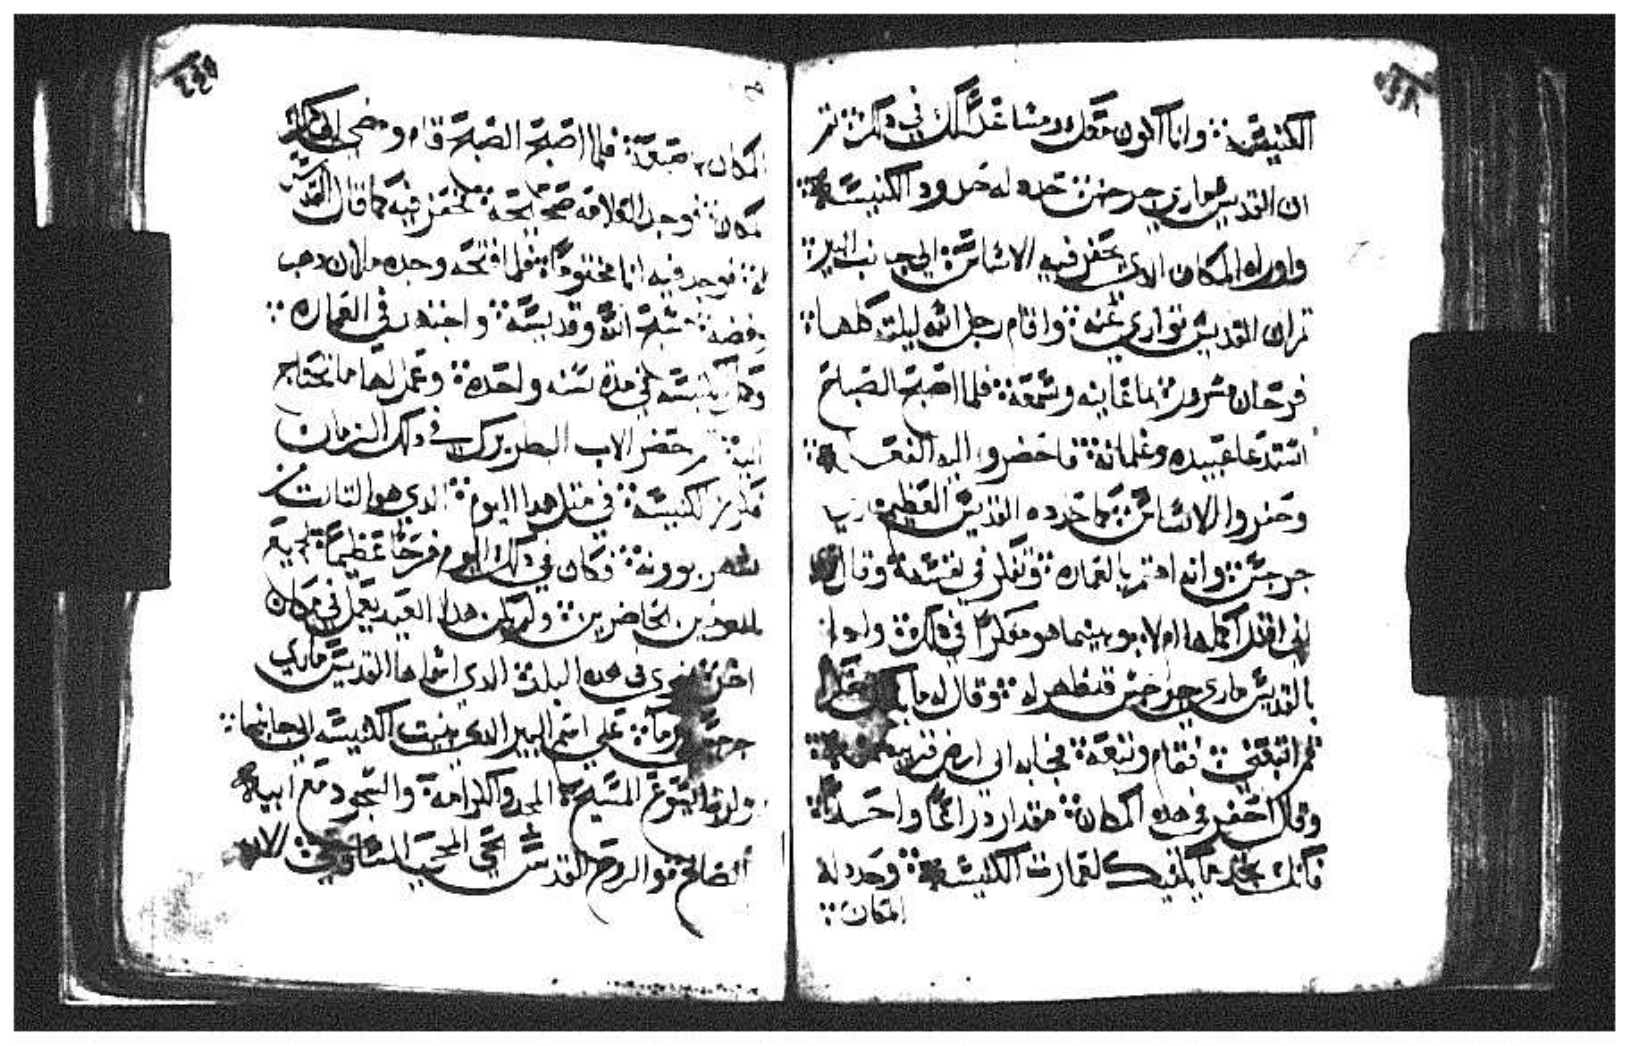 الكنيسة ܀ وانا اكون معك ومساعدا لك في دلك ܀ تم
ان القديس ماري جرجس ܀ حدد له حدود الكنيسة ܀
واوراه المكان الدي يحفر فيه الاساس ܀ الي جانب البير ܀
تم ان القديس تواري عنه ܀ واقام رجل الله ليلته كلها ܀
فرحان مسرور ܀ بما عاينه وسمعه ܀ فلما اصبح الصباح
استدعا عبيده وغلمانه ܀ فاحضروا اليه الفعـ ܀
وحفروا الاساس ܀ كما حدده القديس العظيم ماري
جرجس ܀ وانه اهتم بالعماره ܀ وفكر في نفسه ܀ وقال
اني اقدر اكملها ام لا ܀ وبينما هو مفكرا في دلك ܀ وادا
بالقديس ماري جرجس قد ظهر له ܀ وقال له ما
تم اتبعني ܀ فقام وتبعه ܀ فجا به الي ارض قريبه ܀
وقال احفر في هده المكان ܀ مقدار دراعا واحدا ܀
فانك تجد ما يكفيك لعمارت الكنيسة ܀ وحدد له
المكان ܀
المكان ܀ فلما اصبح الصبح قام ومضي الي
مكان ܀ وجد العلامه صحيحه ܀ فحفر فيه كما قال القديس
له ܀ فوجد فيه انا مختوما ܀ فلما افتحه وجده ملان دهب
وفضه ܀ فسبح الله وقديسه ܀ واجتهد في العماره ܀
وكمل كنيسته في مدة سنه واحده ܀ وعمل لها ما تحتاج
اليه ܀ تم حضر الاب البطريرك في دلك الزمان
فكرز الكنيسه ܀ في متل هدا اليوم ܀ الدي هو التالت من
شهر بوونه ܀ فكان في دلك اليوم فرحا عظيما ܀ لجميع
المومنين الحاضرين ܀ ولم يكن هدا العيد يعمل في مكان
اخر ܀ سوي في هده البلدة الدي اسماها القديس ماري
جرجس ܀ علي اسم البير الدي بنيت الكنيسه الي جانبها ܀
ولربنا ايسوع المسيح ܀ المجد والكرامه ܀ والسجود مع ابيه
الصالح ܀ والروح القدس المحي المساوي ܀ الان